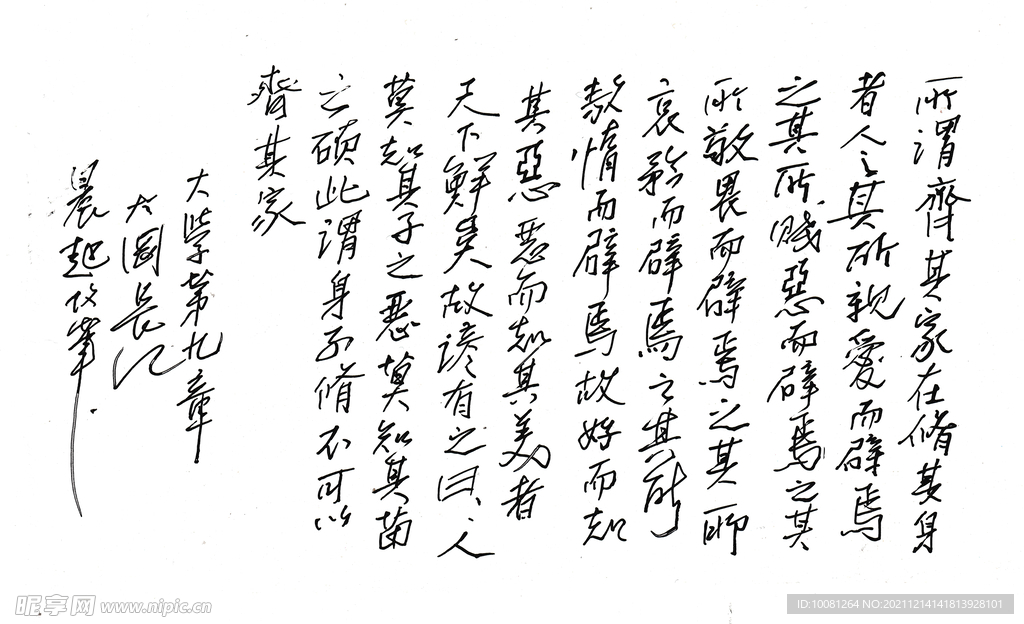 所謂齊其家在脩其身
者人之其所親愛而辟焉
之其所賤惡而辟焉之其
所敬畏而辟焉之其所
哀矜而辟焉之其所
敖惰而辟焉故好而知
其惡惡而知其美者
天下鮮矣故諺有之曰、人
莫知其子之惡莫知其苗
之碩此謂身不脩不可以
齊其家
大學第九章
長江
晨起
昵享网 www.nipic.cn
ID:10081264 NO:20211214141813928101